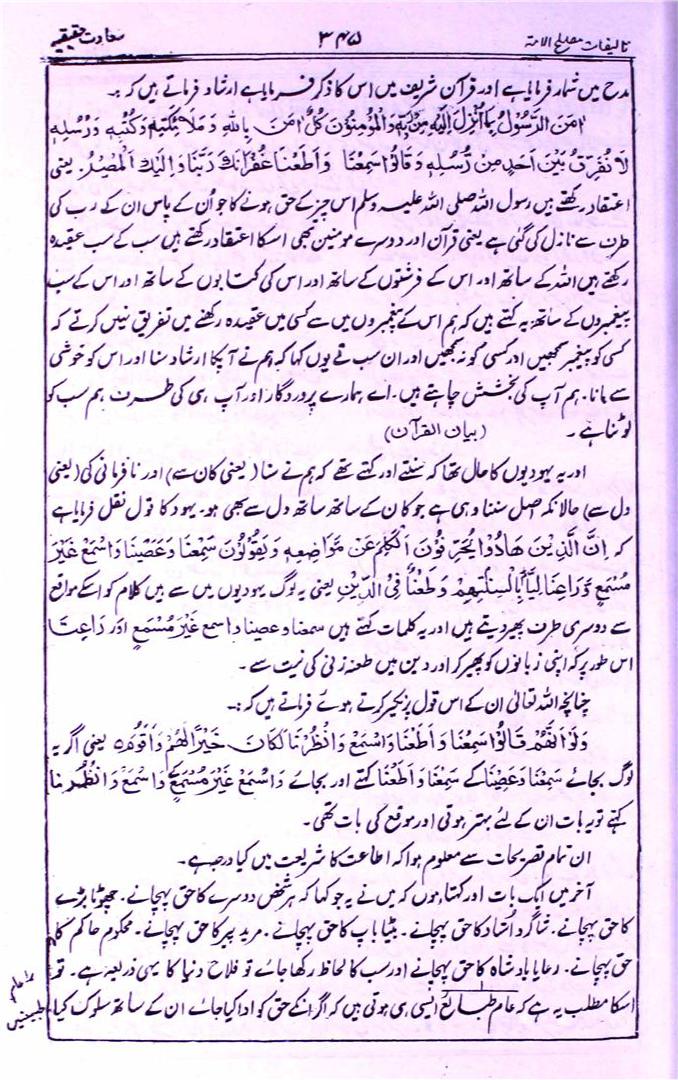 تالیفات مصلح الامۃ ۳۴۵ سعادت حقیقیہ
مدح میں شمار فرمایا ہے اور قرآن شریف میں اس کا ذکر فرمایا ہے ارشاد فرماتے ہیں کہ :۔
اٰمَنَ الرَّسُوْلُ بِمَا اُنْزِلَ اِلَیْهِ مِنْ رَّبِّهٖ وَالْمُؤْمِنُوْنَ کُلٌّ اٰمَنَ بِاللّٰهِ وَمَلٰٓئِکَتِهٖ وَکُتُبِهٖ وَرُسُلِهٖ
لَا نُفَرِّقُ بَیْنَ اَحَدٍ مِنْ رُّسُلِهٖ وَقَالُوْا سَمِعْنَا وَاَطَعْنَا غُفْرَانَكَ رَبَّنَا وَاِلَیْكَ الْمَصِیْرُ۔ یعنی
اعتقاد رکھتے ہیں رسول اللہ صلی اللہ علیہ وسلم اس چیز کے حق ہونے کا جو اُن کے پاس ان کے رب کی
طرف سے نازل کی گئی ہے یعنی قرآن اور دوسرے مومنین بھی اسکا اعتقاد رکھتے ہیں سب کے سب عقیدہ
رکھتے ہیں اللہ کے ساتھ اور اس کے فرشتوں کے ساتھ اور اس کی کتابوں کے ساتھ اور اس کے سب
پیغمبروں کے ساتھ، یہ کہتے ہیں کہ ہم اس کے پیغمبروں میں سے کسی میں عقیدہ رکھنے میں تفریق نہیں کرتے کہ
کسی کو پیغمبر سمجھیں اور کسی کو نہ سمجھیں اور ان سب نے یوں کہا کہ ہم نے آپکا ارشاد سنا اور اس کو خوشی
سے مانا۔ ہم آپ کی بخشش چاہتے ہیں۔ اے ہمارے پروردگار اور آپ ہی کی طرف ہم سب کو
لوٹنا ہے۔ (بیان القرآن)
اور یہ یہودیوں کا حال تھا کہ سنتے اور کہتے تھے کہ ہم نے سنا (یعنی کان سے) اور نافرمانی کی (یعنی
دل سے) حالانکہ اصل سننا وہی ہے جو کان کے ساتھ ساتھ دل سے بھی ہو۔ یہود کا قول نقل فرمایا ہے
کہ اِنَّ الَّذِیْنَ هَادُوْا یُحَرِّفُوْنَ الْکَلِمَ عَنْ مَّوَاضِعِهٖ وَیَقُوْلُوْنَ سَمِعْنَا وَعَصَیْنَا وَاسْمَعْ غَیْرَ
مُسْمَعٍ وَّرَاعِنَا لَیًّا بِاَلْسِنَتِهِمْ وَطَعْنًا فِی الدِّیْنِ یعنی یہ لوگ یہودیوں میں سے ہیں کلام کو اسکے مواقع
سے دوسری طرف پھیر دیتے ہیں اور یہ کلمات کہتے ہیں سمعنا وعصینا واسمع غَیْرَ مُسْمَعٍ اور رَاعِنَا
اس طور پر کہ اپنی زبانوں کو پھیر کر اور دین میں طعنہ زنی کی نیت سے۔
چنانچہ اللہ تعالیٰ ان کے اس قول پر نکیر کرتے ہوئے فرماتے ہیں کہ :۔
وَلَوْ اَنَّهُمْ قَالُوْا سَمِعْنَا وَاَطَعْنَا وَاسْمَعْ وَانْظُرْنَا لَکَانَ خَیْرًا لَّهُمْ وَاَقْوَمَ۔ یعنی اگر یہ
لوگ بجائے سَمِعْنَا وَعَصَیْنَا کے سَمِعْنَا وَاَطَعْنَا کہتے اور بجائے وَاسْمَعْ غَیْرَ مُسْمَعٍ کے وَاسْمَعْ وَانْظُرْنَا
کہتے تو یہ بات ان کے لئے بہتر ہوتی اور موقع کی بات تھی۔
ان تمام تصریحات سے معلوم ہوا کہ اطاعت کا شریعت میں کیا درجہ ہے۔
آخر میں ایک بات اور کہتا ہوں کہ میں نے یہ جو کہا کہ ہر شخص دوسرے کا حق پہچانے۔ چھوٹا بڑے
کا حق پہچانے۔ شاگرد اُستاد کا حق پہچانے۔ بیٹا باپ کا حق پہچانے۔ مرید پیر کا حق پہچانے۔ محکوم حاکم کا
حق پہچانے۔ رعایا بادشاہ کا حق پہچانے اور سب کا لحاظ رکھا جائے تو فلاح دنیا کا یہی ذریعہ ہے۔ تو
اسکا مطلب یہ ہے کہ عام طبائع ایسی ہی ہوتی ہیں کہ اگر انکے حق کو ادا کیا جائے ان کے ساتھ سلوک کیا
طبیعتیں